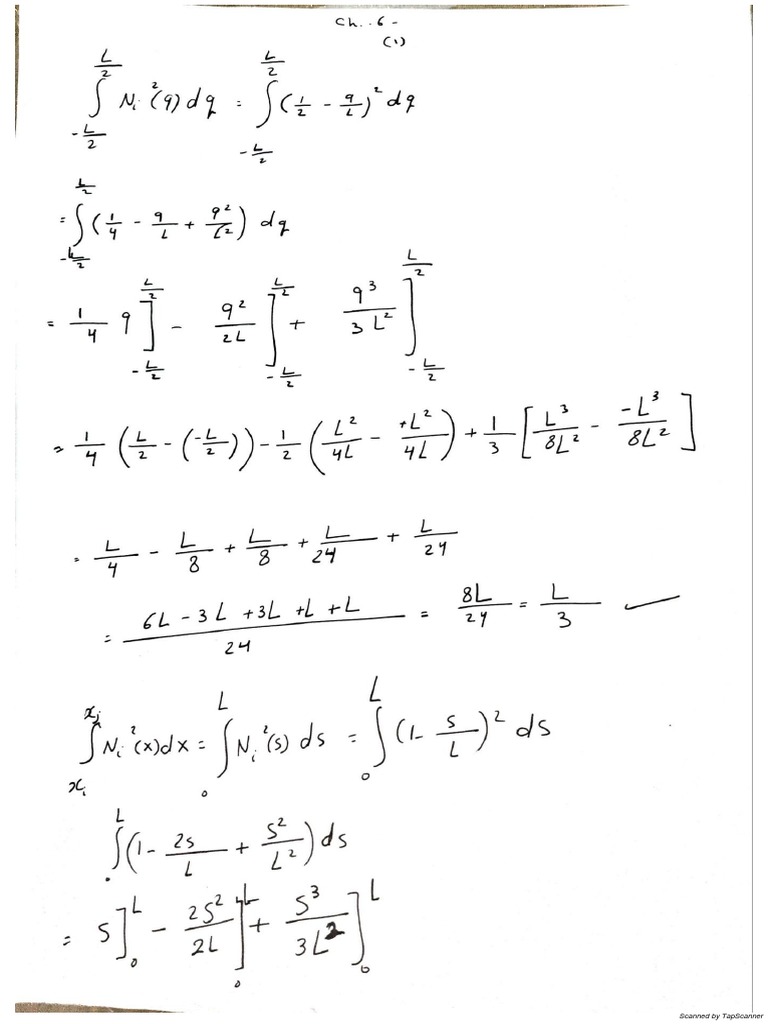 Ch. .6 -
(1)
∫_{-L/2}^{L/2} N_i²(q) dq = ∫_{-L/2}^{L/2} (1/2 - q/L)² dq
= ∫_{-L/2}^{L/2} (1/4 - q/L + q²/L²) dq
= 1/4 q]_{-L/2}^{L/2} - q²/2L]_{-L/2}^{L/2} + q³/3L²]_{-L/2}^{L/2}
= 1/4 (L/2 - (-L/2)) - 1/2 (L²/4L - +L²/4L) + 1/3 [L³/8L² - -L³/8L²]
= L/4 - L/8 + L/8 + L/24 + L/24
= (6L - 3L + 3L + L + L)/24 = 8L/24 = L/3 ✓
∫_{x_i}^{x_j} N_i²(x)dx = ∫_0^L N_i²(s) ds = ∫_0^L (1 - s/L)² ds
∫_0^L (1 - 2s/L + s²/L²) ds
= s]_0^L - 2s²/2L]_0^L + s³/3L²]_0^L
Scanned by TapScanner